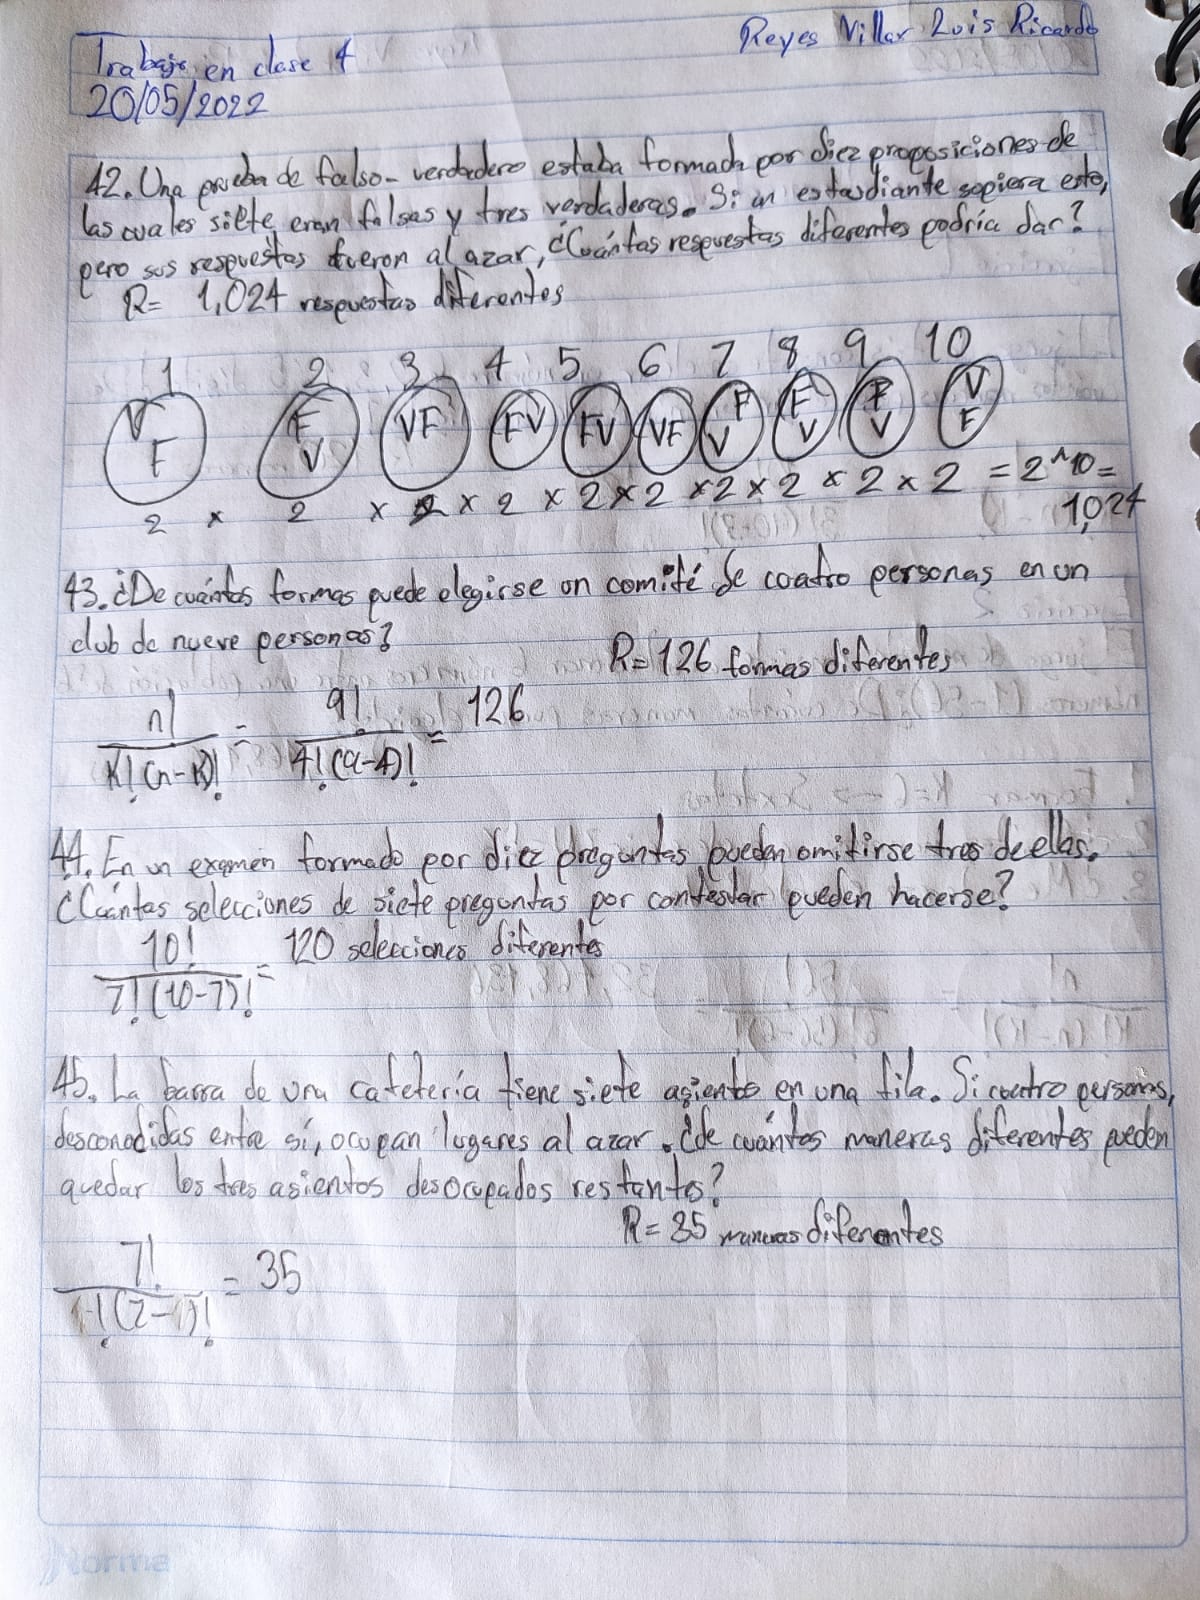 Reyes Villar Luis Ricardo
Trabajo en clase 4
20/05/2022
42. Una prueba de falso-verdadero estaba formada por diez proposiciones de
las cuales siete eran falsas y tres verdaderas. Si un estudiante supiera esto,
pero sus respuestas fueron al azar, ¿Cuántas respuestas diferentes podría dar?
R= 1,024 respuestas diferentes
1 2 3 4 5 6 7 8 9 10
V F F V VF FV FV VF F V F V F V V F
2 x 2 x 2 x 2 x 2 x 2 x 2 x 2 x 2 x 2 = 2^10 =
1,024
43. ¿De cuántas formas puede elegirse un comité de cuatro personas en un
club de nueve personas?
R= 126 formas diferentes
n! / K!(n-K)! = 9! / 4!(9-4)! = 126
44. En un examen formado por diez preguntas pueden omitirse tres de ellas.
¿Cuántas selecciones de siete preguntas por contestar pueden hacerse?
10! / 7!(10-7)! = 120 selecciones diferentes
45. La barra de una cafetería tiene siete asiento en una fila. Si cuatro personas,
desconocidas entre sí, ocupan lugares al azar. ¿de cuántas maneras diferentes pueden
quedar los tres asientos desocupados restantes?
R= 35 maneras diferentes
7! / !(7- )! = 35
Norma